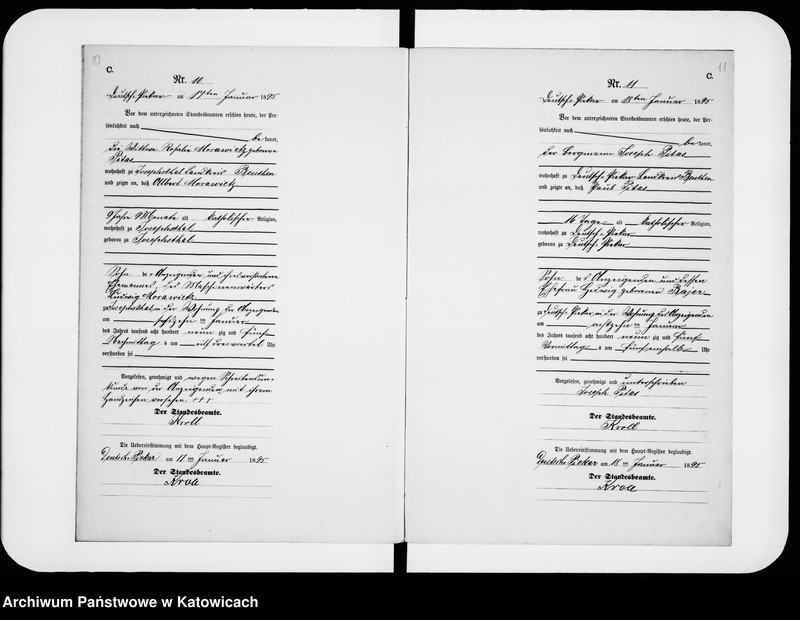 10
C.
Nr. 10
Deutsch Piekar am 17ten Januar 1895
Vor dem unterzeichneten Standesbeamten erschien heute, der Per-
sönlichkeit nach
be kannt,
die Wittwe Rosalie Morawietz geborene
Pitas
wohnhaft zu Josephsthal Landkreis Beuthen
und zeigte an, daß Albert Morawietz
9 Jahre 9 Monate alt katholischer Religion,
wohnhaft zu Josephsthal
geboren zu Josephsthal
Sohn der Anzeigenden und ihres verstorbenen
Ehemannes, des Maschinenwärters
Ludwig Morawietz
zu Josephsthal in der Wohnung der Anzeigenden
am sechszehnten Januar
des Jahres tausend acht hundert neunzig und fünf
Nachmittag s um einhalb Uhr
verstorben sei
Vorgelesen, genehmigt und wegen Schreibensun-
kunde von der Anzeigenden mit ihrem
Handzeichen versehen +++
Der Standesbeamte.
Kroll
Die Uebereinstimmung mit dem Haupt-Register beglaubigt.
Deutsch Piekar am 17ten Januar 1895
Der Standesbeamte.
Kroll
11
C.
Nr. 11
Deutsch Piekar am 18ten Januar 1895
Vor dem unterzeichneten Standesbeamten erschien heute, der Per-
sönlichkeit nach
be kannt,
der Bergmann Joseph Pitas
wohnhaft zu Deutsch Piekar Landkreis Beuthen
und zeigte an, daß Paul Pitas
16 Tage alt katholischer Religion,
wohnhaft zu Deutsch Piekar
geboren zu Deutsch Piekar
Sohn des Anzeigenden und dessen
Ehefrau Hedwig geborenen Bajer
zu Deutsch Piekar in der Wohnung des Anzeigenden
am achtzehnten Januar
des Jahres tausend acht hundert neunzig und fünf
Vormittag s um fünfeinhalb Uhr
verstorben sei
Vorgelesen, genehmigt und unterschrieben
Joseph Pitas
Der Standesbeamte.
Kroll
Die Uebereinstimmung mit dem Haupt-Register beglaubigt.
Deutsch Piekar am 18ten Januar 1895
Der Standesbeamte.
Kroll
Archiwum Państwowe w Katowicach